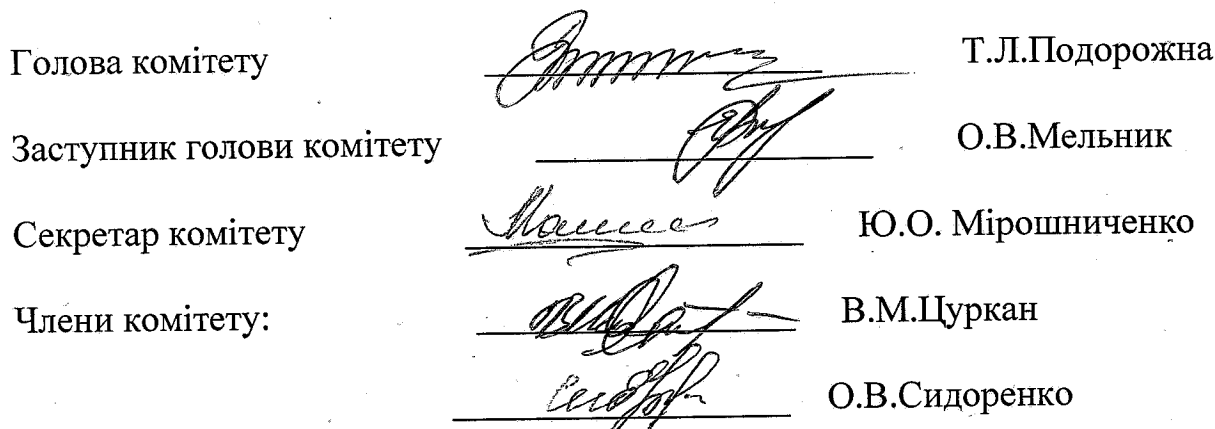 Голова комітету Т.Л.Подорожна
Заступник голови комітету О.В.Мельник
Секретар комітету Ю.О. Мірошниченко
Члени комітету: В.М.Цуркан
О.В.Сидоренко